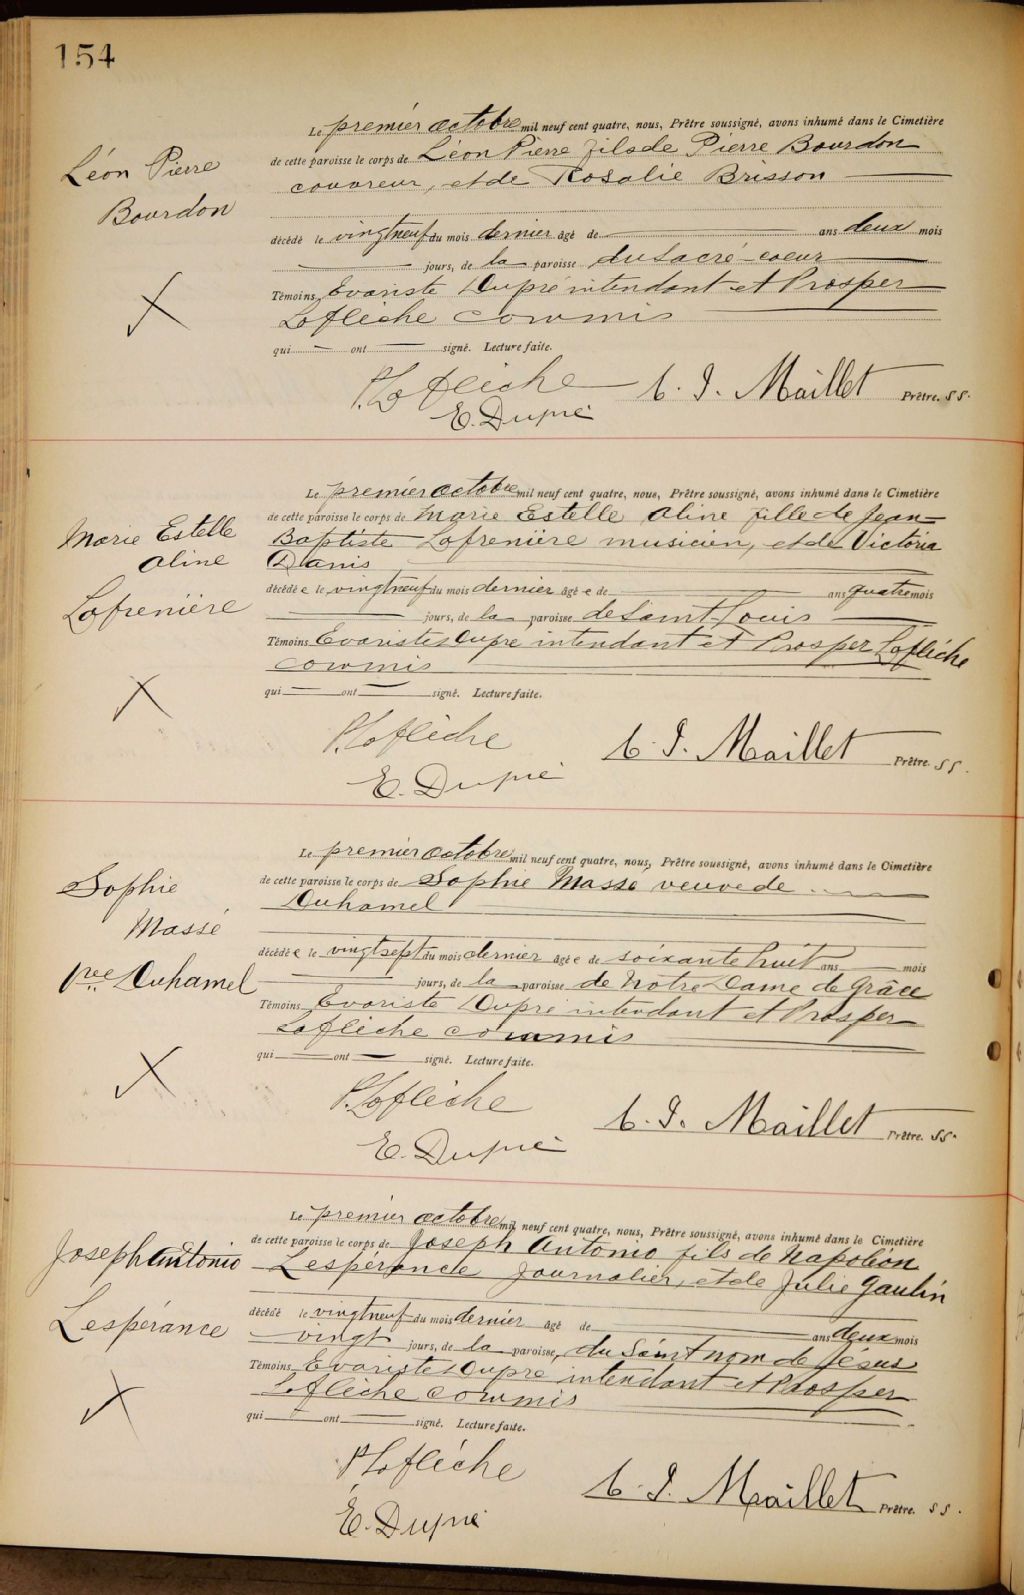 154
Le premier octobre mil neuf cent quatre, nous, Prêtre soussigné, avons inhumé dans le Cimetière
de cette paroisse le corps de Léon Pierre fils de Pierre Bourdon
couvreur, et de Rosalie Brisson
Léon Pierre
Bourdon
décédé le vingt neuf du mois dernier âgé de ans deux mois
jours, de la paroisse du Sacré-coeur
Témoins Evariste Dupré intendant et Prosper
Laflèche commis
qui ont signé. Lecture faite.
P. Laflèche
J. Maillet Prêtre. SS.
E. Dupré
Le premier octobre mil neuf cent quatre, nous, Prêtre soussigné, avons inhumé dans le Cimetière
de cette paroisse le corps de Marie Estelle Aline fille de Jean-
Baptiste Lafrenière musicien, et de Victoria
Danis
Marie Estelle
Aline
Lafrenière
décédée le vingt neuf du mois dernier âgée de ans quatre mois
jours, de la paroisse de Saint-Louis
Témoins Evariste Dupre intendant et Prosper Laflèche
commis
qui ont signé. Lecture faite.
P. Laflèche
J. Maillet Prêtre. SS.
E. Dupré
Le premier octobre mil neuf cent quatre, nous, Prêtre soussigné, avons inhumé dans le Cimetière
de cette paroisse le corps de Sophie Masse veuve de
Duhamel
Sophie
Massé
Vee Duhamel
décédée le vingt sept du mois dernier âgée de soixante huit ans mois
jours, de la paroisse de Notre Dame de Grâce
Témoins Evariste Dupré intendant et Prosper
Laflèche commis
qui ont signé. Lecture faite.
P. Laflèche
J. Maillet Prêtre. SS.
E. Dupré
Le premier octobre mil neuf cent quatre, nous, Prêtre soussigné, avons inhumé dans le Cimetière
de cette paroisse le corps de Joseph Antonio fils de Napoléon
Lespérance journalier, et de Julie Gaulin
Joseph Antonio
Lespérance
décédé le vingt neuf du mois dernier âgé de ans deux mois
vingt jours, de la paroisse, du Saint nom de Jésus
Témoins Evariste Dupre intendant et Prosper
Laflèche commis
qui ont signé. Lecture faite.
P Laflèche
J. Maillet Prêtre. SS.
E. Dupré